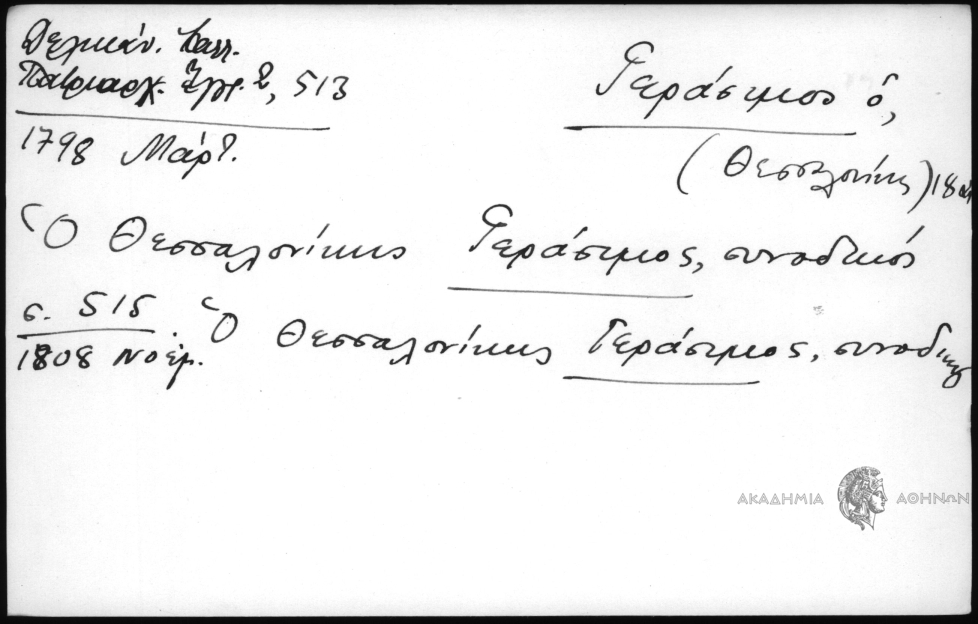 Δελικάν. Καλλ.
Πατριαρχ. Έγγρ. 2, 513
1798 Μάρτ.
Γεράσιμος ὁ,
(Θεσσαλονίκης)
Ὁ Θεσσαλονίκης Γεράσιμος, συνοδικός
σ. 515
1808 Νοέμ. Ὁ Θεσσαλονίκης Γεράσιμος, συνοδικός
ΑΚΑΔΗΜΙΑ ΑΘΗΝΩΝ